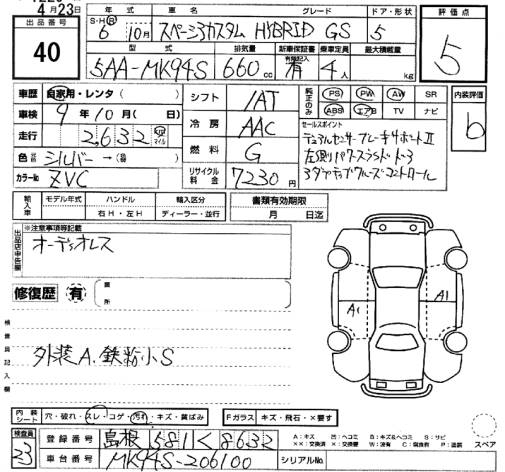 4月23日
出品番号
40
年式 車名 グレード ドア・形状 評価点
S・H・R 6 10月 スペーシアカスタム HYBRID GS 5 5
型式 排気量 新車保証書 有 乗車定員 最大積載量
5AA-MK94S 660cc 有 4人 kg
車歴 自家用・レンタ ( )
車検 9年10月( 日)
走行 2,632 km マイル
色 シルバー → ( )
カラーNo ZVC
シフト IAT
冷房 AAC
燃料 G
リサイクル料金 7230円
純正のみ PS PW AW SR
ABS エアB TV ナビ
内装評価
b
セールスポイント
デュアルセンサーブレーキサポートII
左側パワースライドドア
アダプティブクルーズコントロール
輸入車 モデル年式 ハンドル 輸入区分 書類有効期限
右H・左H ディーラー・並行 月 日迄
出品店申告欄 ※注意事項等記載
オーディオレス
修復歴 有 箇所
検査員記入欄
外装A、鉄粉小S
A1 A1
内装シート 穴・破れ・スレ・コゲ・汚れ・キズ・黄ばみ Fガラス キズ・飛石・×要す
検査員 23
登録番号 島根 581 く 8632
車台番号 MK94S-206100 シリアルNo
A：キズ 凹：ヘコミ B：キズ&ヘコミ S：サビ
××：交換済 ×：要交換 W：波有 C：腐食 P：塗装 スペア